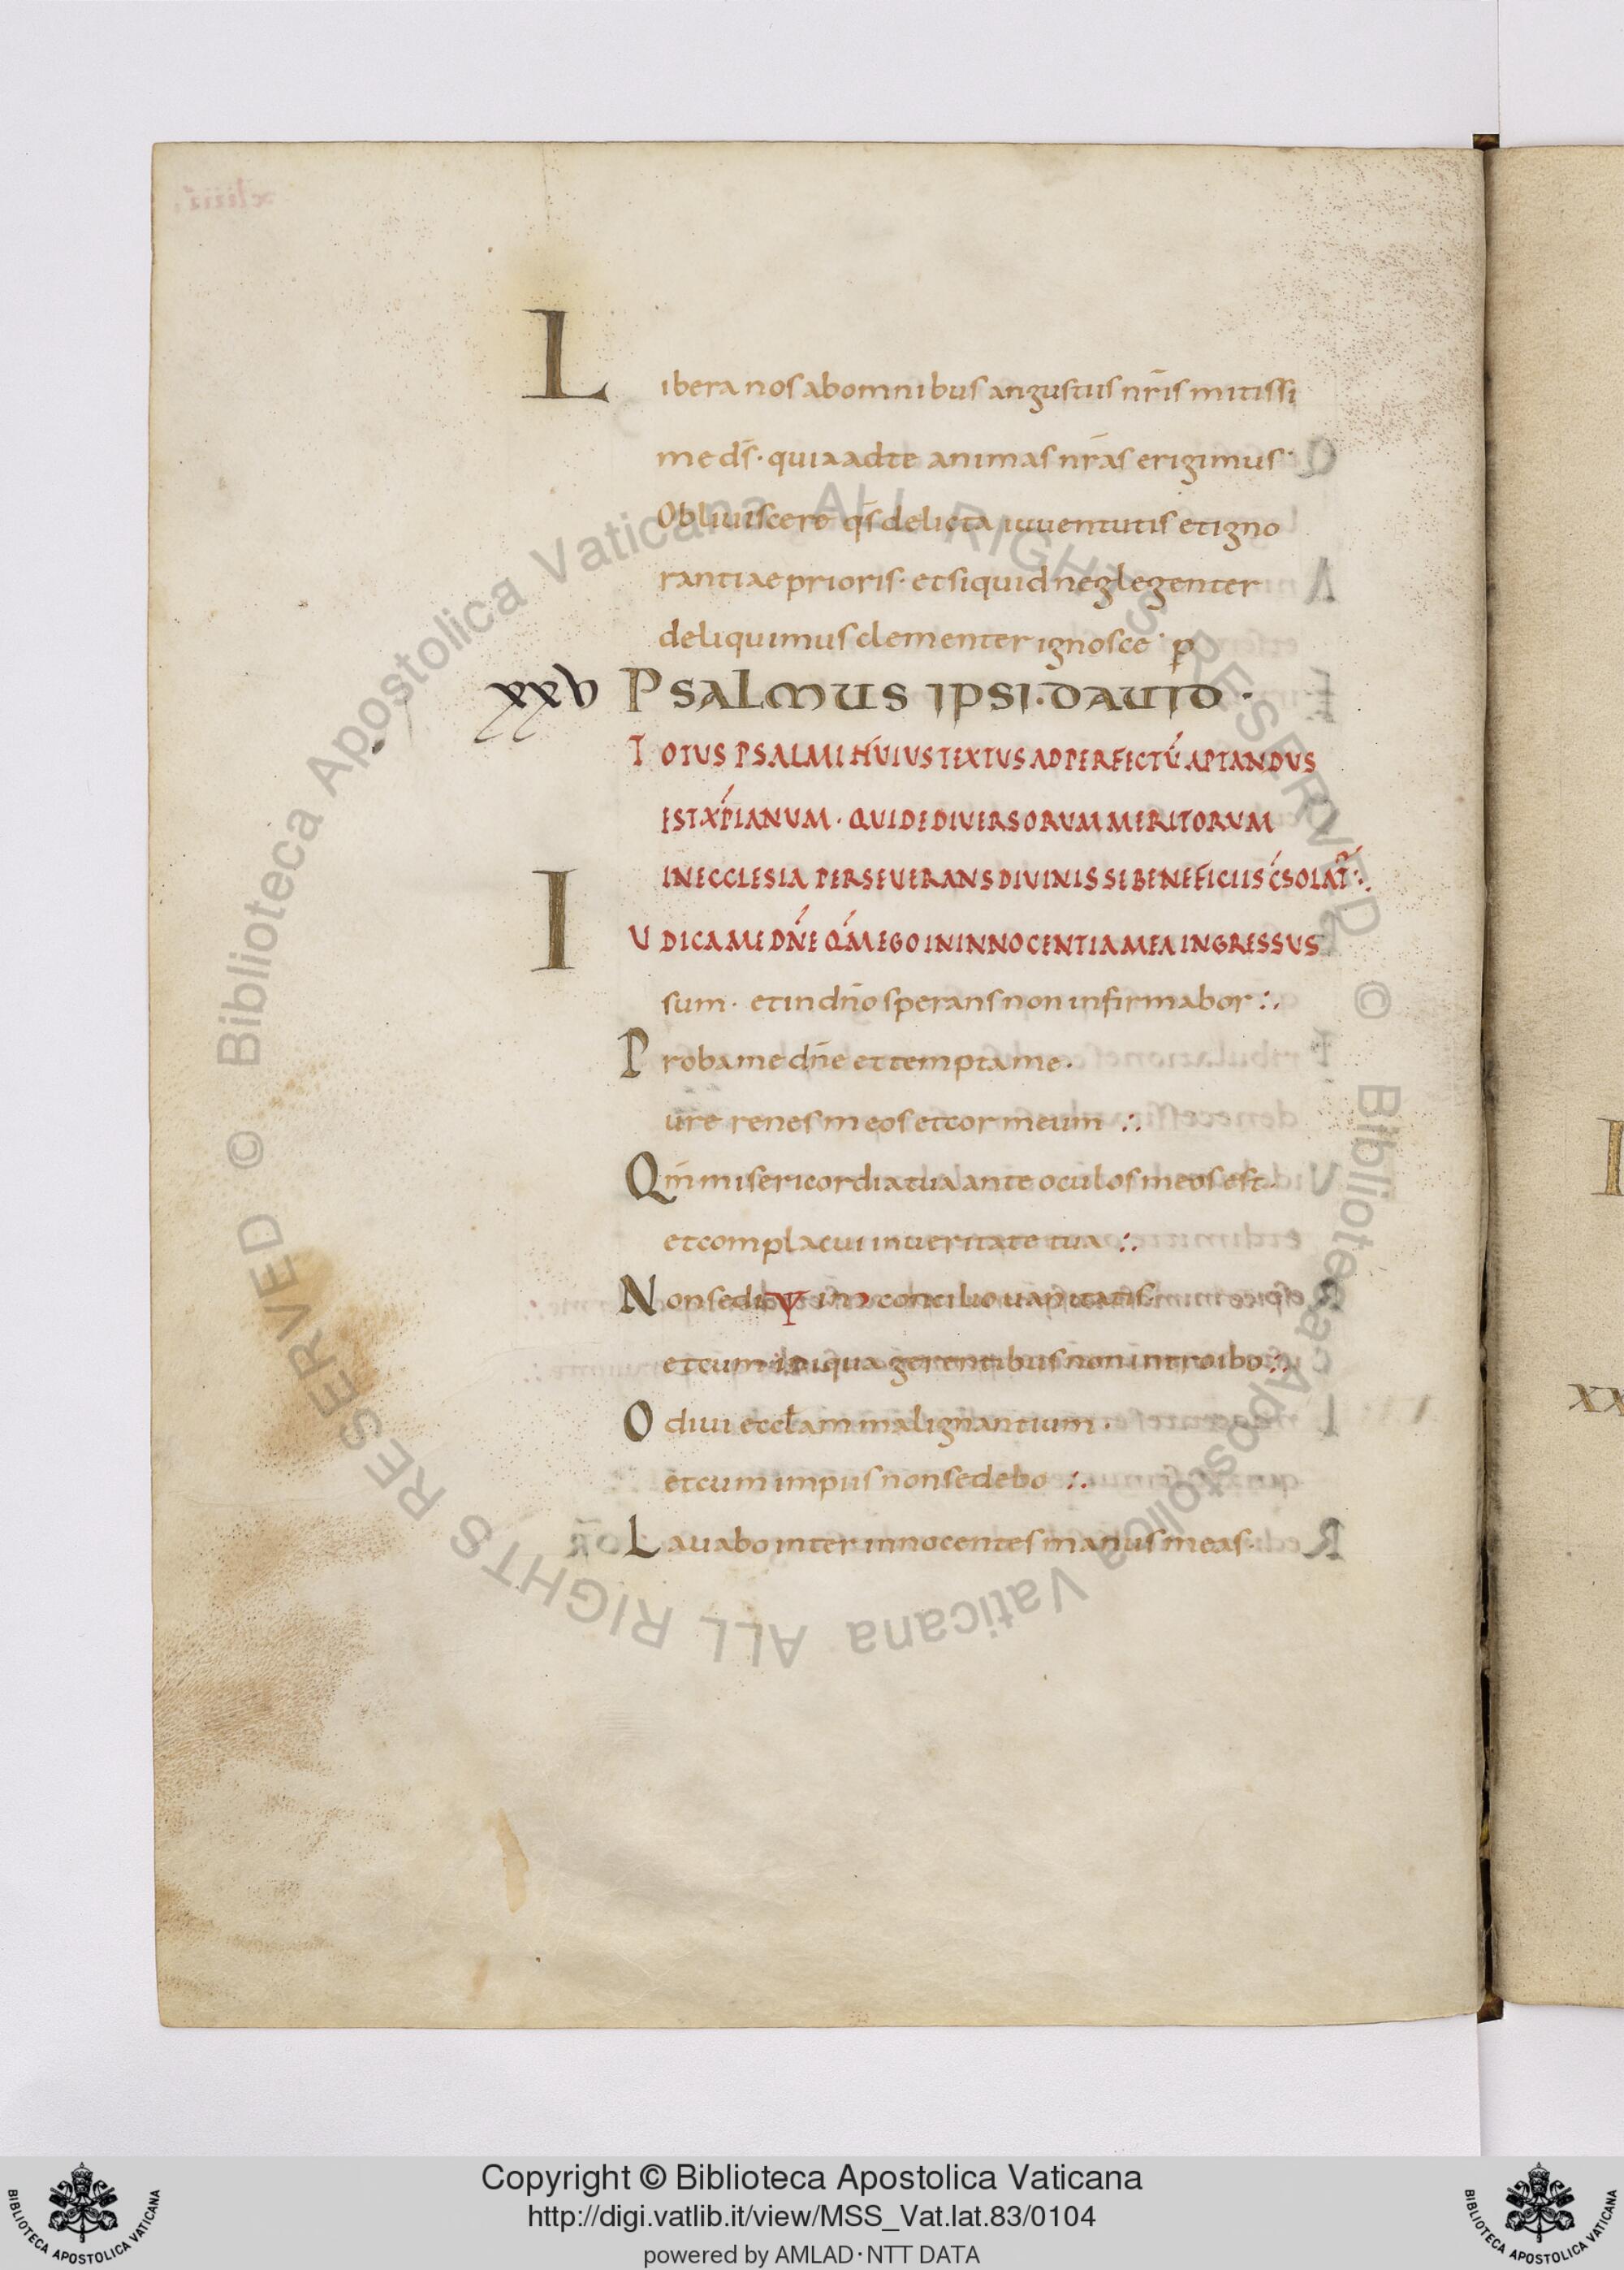 Libera nos ab omnibus angustiis nr̄is mitissi
me ds̄· quia ad te animas nr̄as erigimus·
Obliuiscere qs̄ delicta iuuentutis et igno
rantiae prioris· et si quid neglegenter
deliquimus clementer ignosce· p̱
xxv PSALMUS IPSI·DAUID·
TOTUS PSALMI HUIUS TEXTUS AD PERFECTŪ APTANDUS
EST XP̄IANUM· QUI DE DIUERSORUM MERITORUM
IN ECCLESIA PERSEUERANS DIUINIS SE BENEFICIIS C̄SOLAT̄:.
IUDICA ME DN̄E QM̄ EGO IN INNOCENTIA MEA INGRESSUS
sum· et in dn̄o sperans non infirmabor:.
Proba me dn̄e et tempta me·
ure renes meos et cor meum:.
Qm̄ misericordia tua ante oculos meos est·
et complacui in ueritate tua:.
Non sedi in concilio uanitatis·
et cum iniqua gerentibus non introibo:.
Odiui eccłam malignantium·
et cum impiis non sedebo:.
Lauabo inter innocentes manus meas·
xx
© Biblioteca Apostolica Vaticana ALL RIGHTS RESERVED © Biblioteca Apostolica Vaticana ALL RIGHTS RESERVED
Copyright © Biblioteca Apostolica Vaticana
http://digi.vatlib.it/view/MSS_Vat.lat.83/0104
powered by AMLAD·NTT DATA
BIBLIOTECA APOSTOLICA VATICANA
BIBLIOTECA APOSTOLICA VATICANA